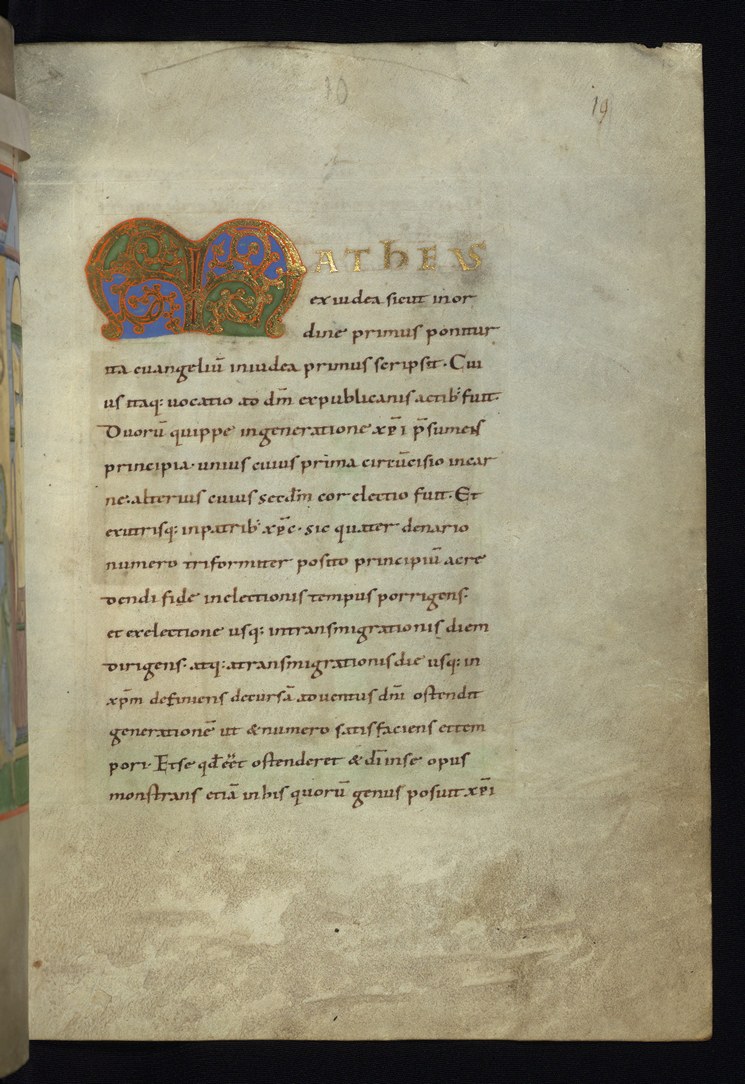 10
19
MATHEUS
ex iudea sicut in or
dine primus ponitur
ita euangeliū iniudea primus scripsit · Cui
us itaq: uocatio ad dm̄ expublicanis actib: fuit·
Duorū quippe ingeneratione xp̄i p̄sumens
principia · unius cuius prima circūcisio incar
ne: alterius cuius secdm̄ cor electio fuit· Et
exutrisq: inpatrib: xp̄c · sic quater denario
numero triformiter posito principiū acre
dendi fide inelectionis tempus porrigens·
et exelectione usq: intransmigrationis diem
dirigens· atq: atransmigrationis die usq: in
xp̄m definiens decursā aduentus dn̄i ostendit
generationē ut & numero satisfaciens ettem
pori· Et se qđ eēt ostenderet & dī inse opus
monstrans etiā inhis quorū genus posuit xp̄i